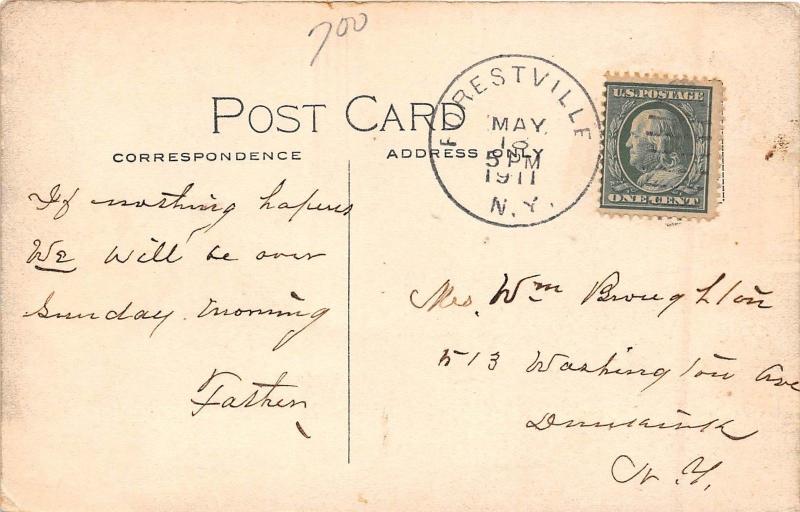 700
POST CARD
CORRESPONDENCE
ADDRESS ONLY
FORESTVILLE
MAY
18
5 PM
1911
N.Y.
U.S. POSTAGE
ONE CENT
If nothing hapens
We will be over
Sunday morning
Father
Mrs. Wm Broughton
513 Washington Ave
Dunkirk
N.Y.